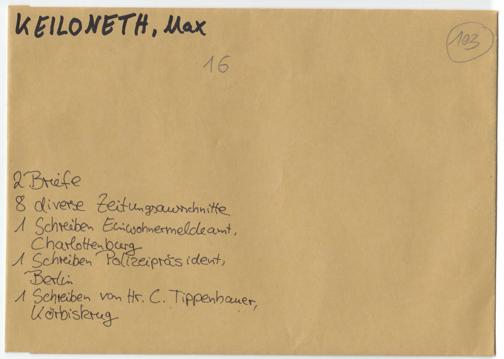 KEILONETH, Max
103
16
2 Briefe
8 diverse Zeitungsausschnitte
1 Schreiben Einwohnermeldeamt,
Charlottenburg
1 Schreiben Polizeipräsident,
Berlin
1 Schreiben von Hr. C. Tippenhauer,
Körbiskrug